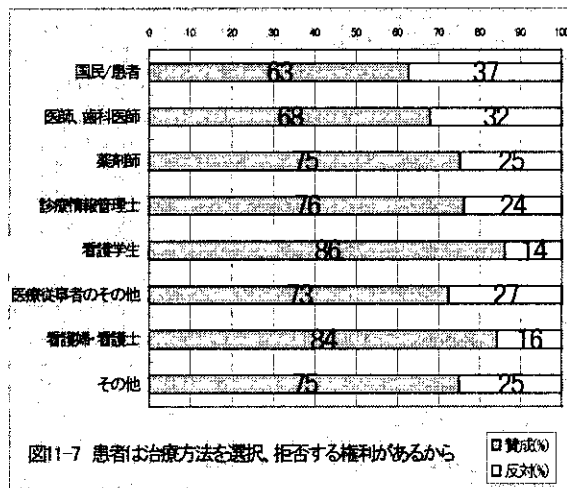 0 10 20 30 40 50 60 70 80 90 100
国民/患者 63 37
医師、歯科医師 68 32
薬剤師 75 25
診療情報管理士 76 24
看護学生 86 14
医療従事者のその他 73 27
看護婦・看護士 84 16
その他 75 25
図11-7 患者は治療方法を選択、拒否する権利があるから
賛成(%)
反対(%)